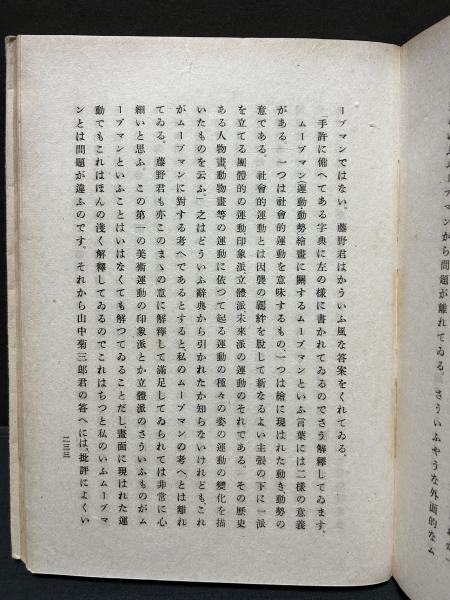 いふムーブマンから問題が離れてゐる。さういふやうな外面的なム
ーブマンではない。藤野君はかういふ風な答案をくれてゐる。
「手許に備へてある字典に左の樣に書かれてゐるのでさう解釋してゐます。
ムーブマン(運動動勢繪畫に關するムーブマンといふ言葉には二樣の意義
がある。一つは社會的運動を意味するもの、一つは繪に現はれた動き動勢の
意である。社會的運動とは因襲の羈絆を脫して新なるよい主張の下に一派
を立てる團體的の運動印象派立體派未來派の運動のそれである。その歷史
ある人物畫動物畫等の運動に依つて起る運動の種々の姿の運動の變化を描
いたものを云ふ」之はどういふ辭典から引かれたか知らないけれども、これ
がムーブマンに對する考へであるとすると、私のムーブマンの考へとは離れ
てゐる。藤野君も亦このまゝの意に解釋してゐられては非常に心
細いと思ふ。この第一の美術運動の印象派とか立體派のさういふものがム
ーブマンといふことはいはなくても解つてゐることだし畫面に現はれた運
動でもこれはほんの淺く解釋してゐるのでこれはちつと私のいふムーブマ
ンとは問題が違ふのです。それから山中菊三郎君の答へには、批評によくい
二三三